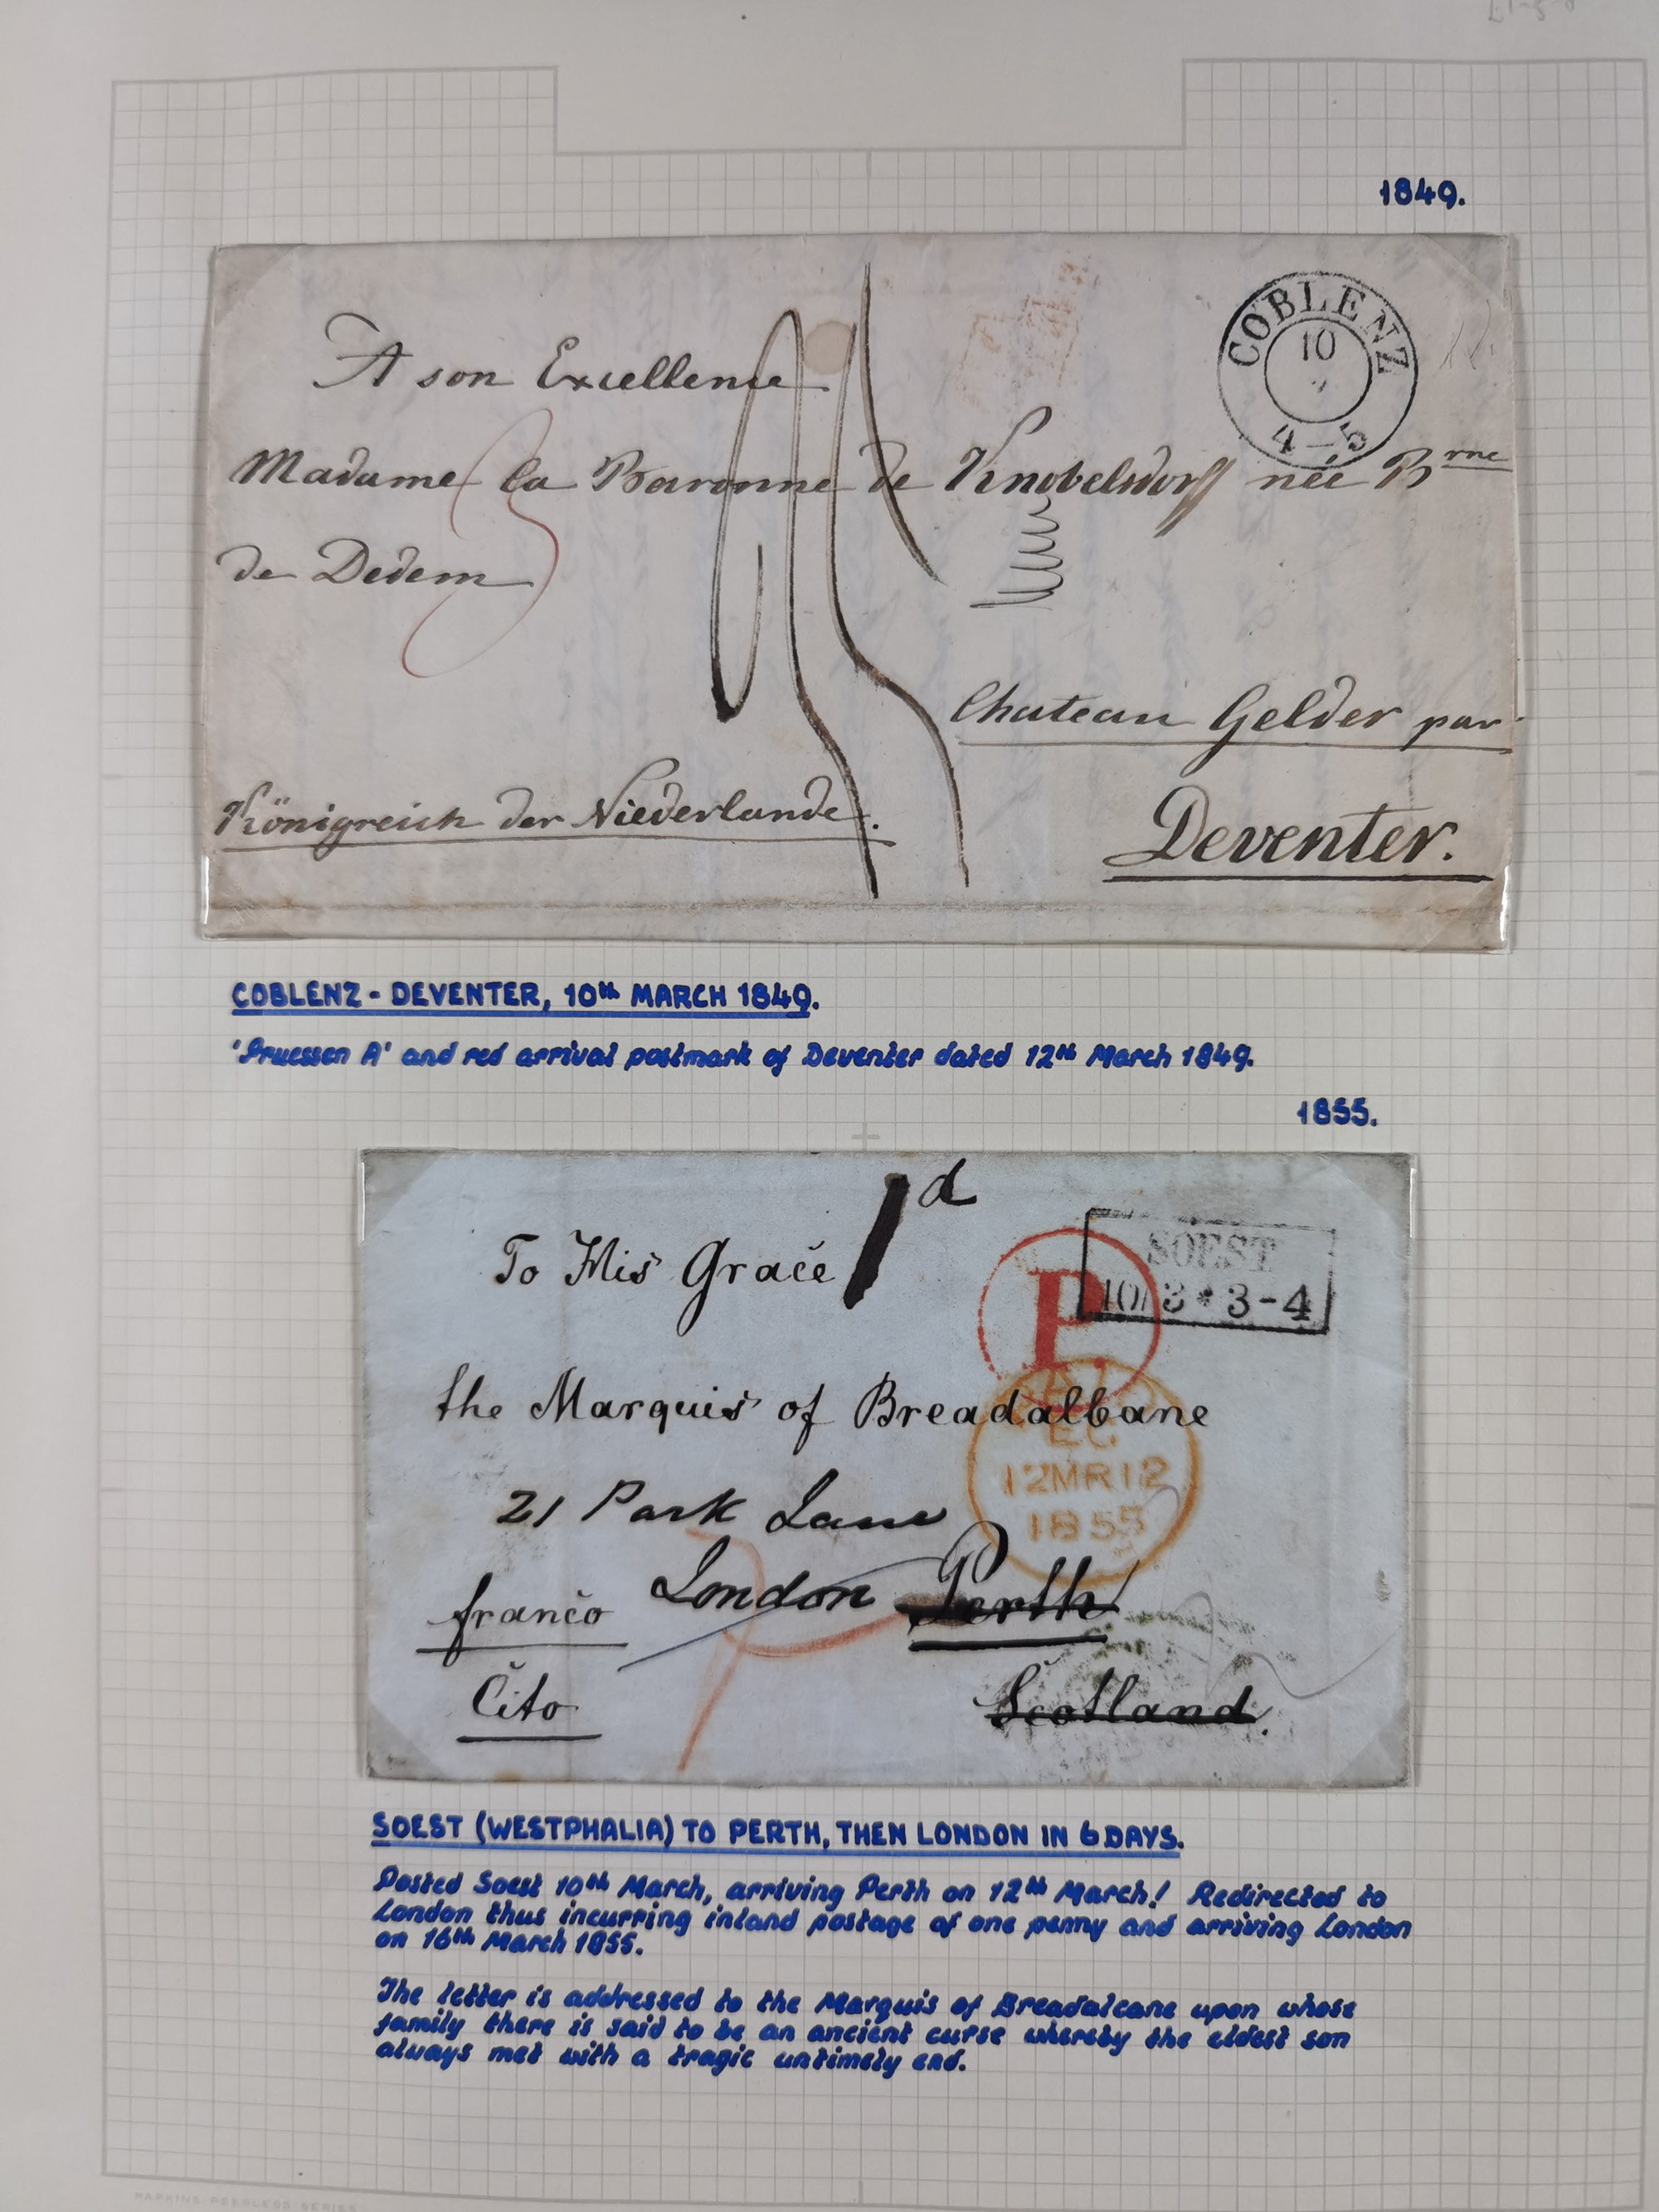 1849.
COBLENZ
10
4-5
A son Excellence
Madame la Baronne de Knobelsdorff née Brne
de Dedem
Chateau Gelder par
Königreich der Niederlande.
Deventer.
COBLENZ - DEVENTER, 10th MARCH 1849.
'Pruessen A' and red arrival postmark of Deventer dated 12th March 1849.
1855.
1d
SOEST
10/3 * 3-4
P.
To His Grace
the Marquis of Breadalbane
EC
12MR12
1855
21 Park Lane
London Perth
franco
Cito
Scotland.
SOEST (WESTPHALIA) TO PERTH, THEN LONDON IN 6 DAYS.
Posted Soest 10th March, arriving Perth on 12th March! Redirected to
London thus incurring inland postage of one penny and arriving London
on 16th March 1855.
The letter is addressed to the Marquis of Breadalcane upon whose
family there is said to be an ancient curse whereby the eldest son
always met with a tragic untimely end.